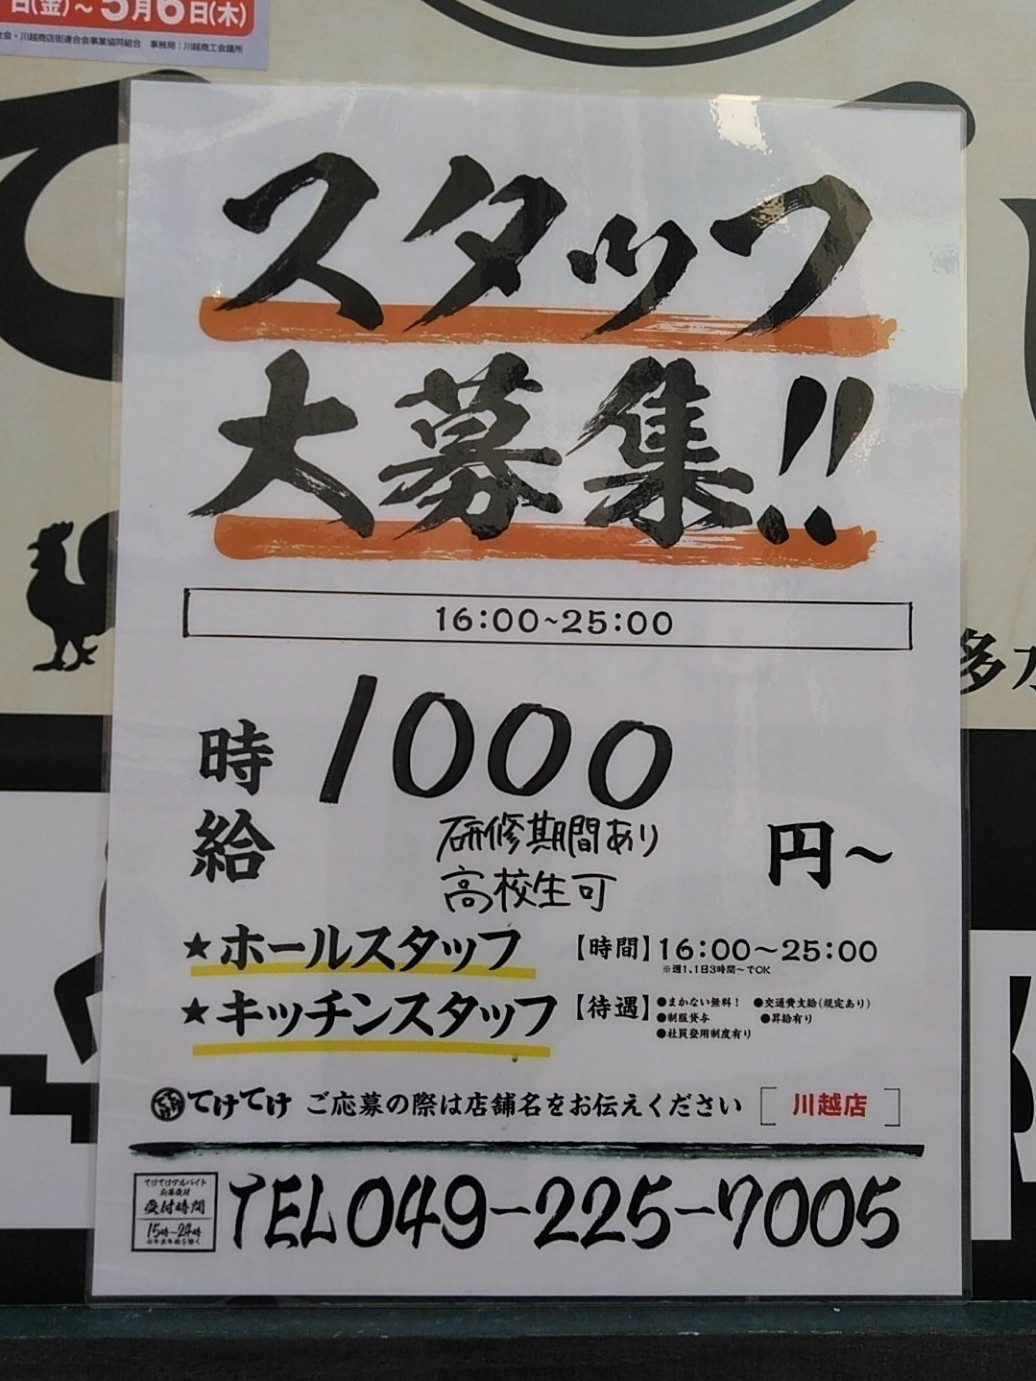 日(金)～5月6日(木)
会・川越商店街連合会事業協同組合 事務局：川越商工会議所
スタッフ
大募集!!
16:00~25:00
時給 1000 円～
研修期間あり
高校生可
★ホールスタッフ
★キッチンスタッフ
【時間】16:00～25:00
※週1、1日3時間～でOK
【待遇】●まかない無料！ ●交通費支給(規定あり)
●制服貸与 ●昇給有り
●社員登用制度有り
てけてけ ご応募の際は店舗名をお伝えください [川越店]
てけてけアルバイト
応募受付
受付時間
15時～24時
TEL 049-225-7005
て
多